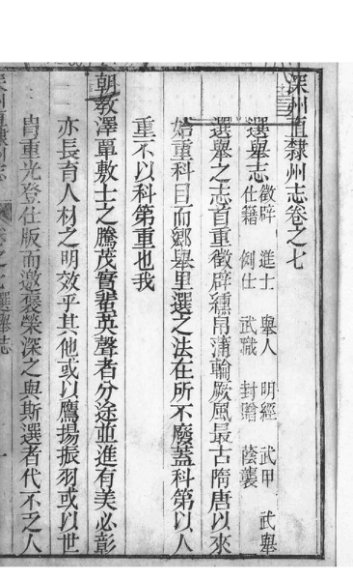 深州直隸州志卷之七
選舉志 徵辟 進士 舉人 明經 武甲 武舉
仕籍 例仕 武職 封贈 蔭襲
選舉之志首重徵辟纁帛蒲輪厥風最古隋唐以來
始重科目而鄉舉里選之法在所不廢蓋科第以人
重不以科第重也我
朝教澤覃敷士之騰茂實蜚英聲者分途並進有美必彰
亦長育人材之明效乎其他或以鷹揚振羽或以世
冑重光登仕版而邀褒榮深之與斯選者代不乏人
深州直隸州志 卷之七 選舉志 一